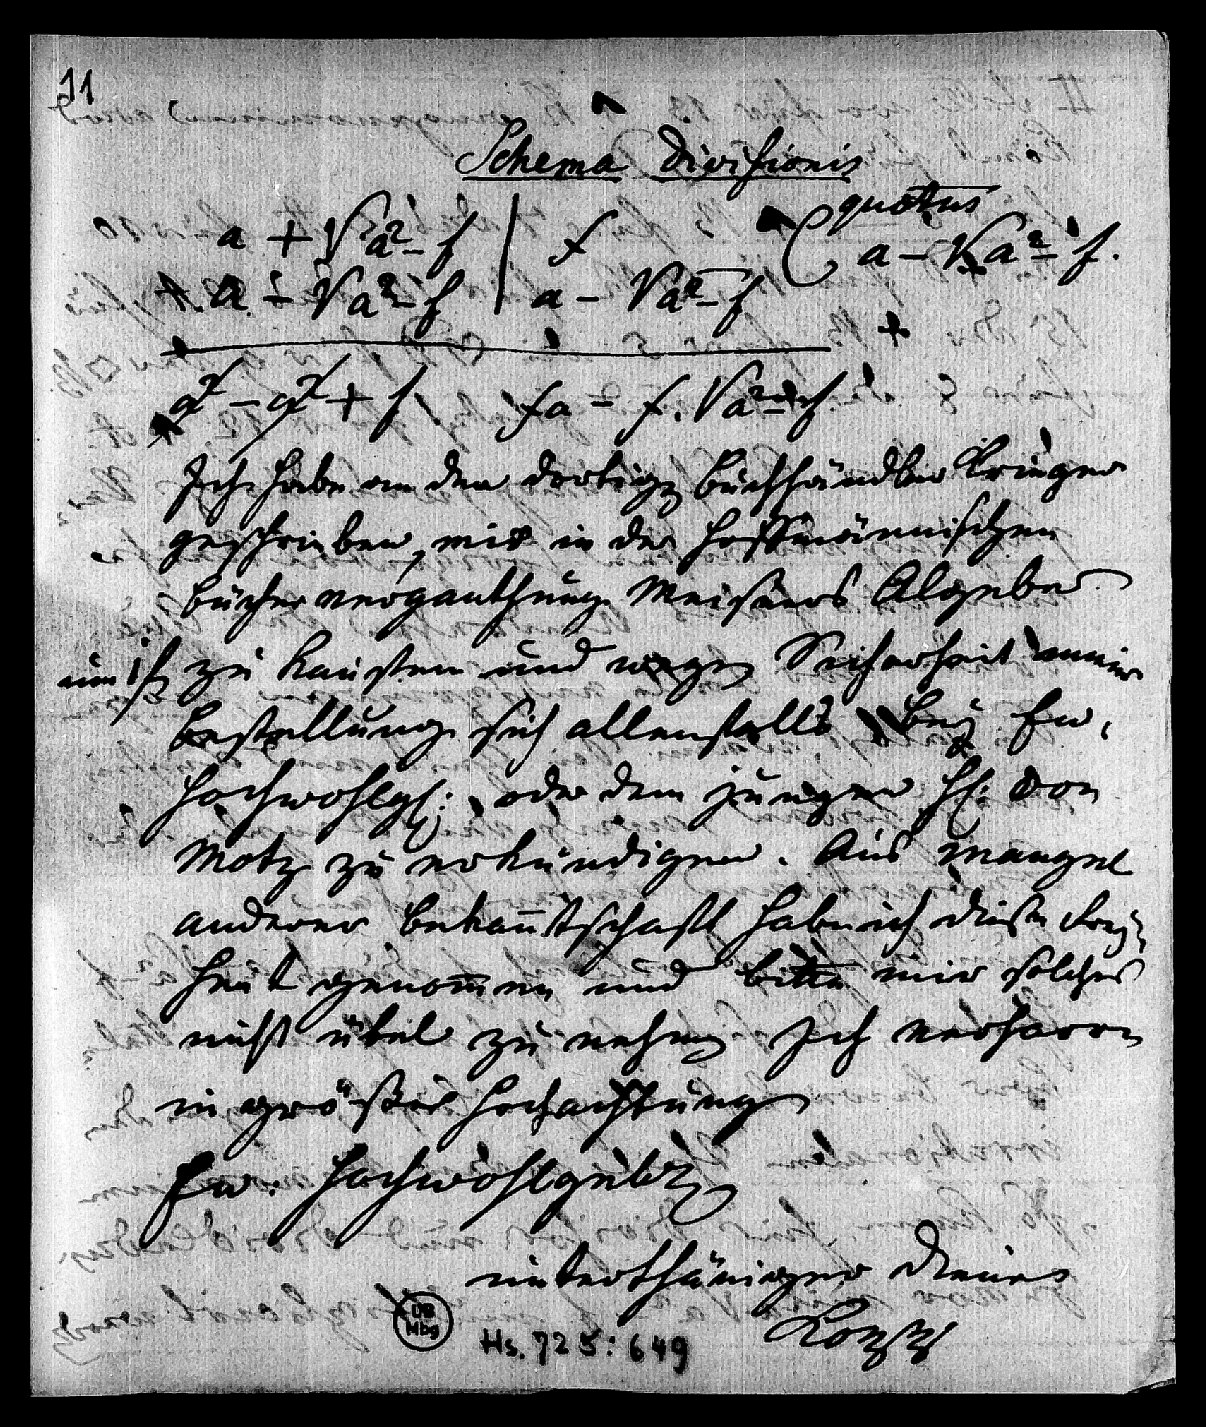 11
Schema Divisionis
quotus
a + √a² - f | f ( a - √a² - f.
+. a - √a² - f | a - √a² - f
+
a² - a² + f fa - f. √a² - f
Ich habe an den dortigen Buchhändler Krieger
geschrieben, mir in der Hoffmännischen
Büchervergantthung Meisters Algeber
zu kauffen und wegen Sicherheit meiner
Bestellung sich allenfalls bey Ew.
Hochwohlgeb: oder dem jungen H: von
Motz zu erkundigen. Aus mangel
anderer Bekantschafft habe ich diese Frey-
heit genommen und bitte mir solches
nicht übel zu nehmen Ich verharre
in größter Hochachtung
Ew. Hochwohlgeb
unterthäniger Diener
DB
Mbg
Hs. 725: 649